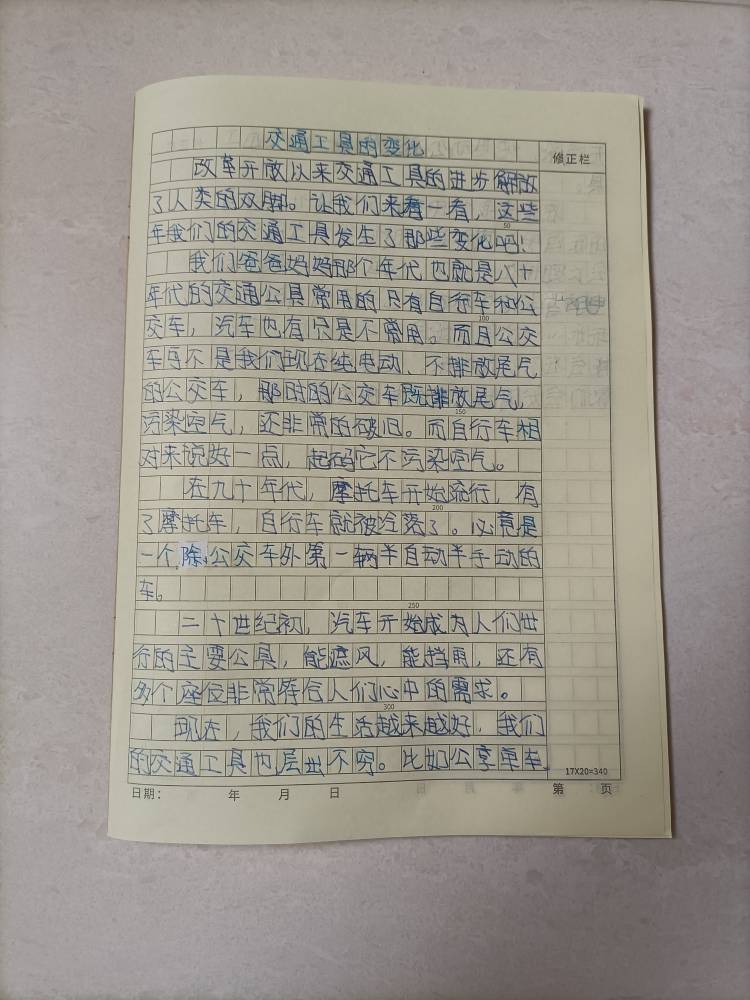 交通工具的变化
修正栏
改革开放以来交通工具的进步解放
了人类的双脚。让我们来看一看，这些
50
年我们的交通工具发生了那些变化吧！
我们爸爸妈妈那个年代也就是八十
年代的交通公具常用的只有自行车和公
100
交车，汽车也有只是不常用。而且公交
车可不是我们现在纯电动、不排放尾气
的公交车，那时的公交车既排放尾气，
150
污染空气，还非常的破旧。而自行车相
对来说好一点，起码它不污染空气。
在九十年代，摩托车开始流行，有
200
了摩托车，自行车就被冷落了。必竟是
一个除公交车外第一辆半自动半手动的
车。
250
二十世纪初，汽车开始成为人们出
行的主要公具，能遮风，能挡雨，还有
多个座位非常符合人们心中的需求。
300
现在，我们的生活越来越好，我们
的交通工具也层出不穷。比如公享单车、
17X20=340
日期： 年 月 日 第 页